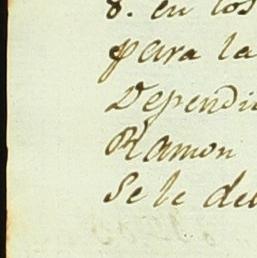 8. en los
para la
Dependi
Ramon
Se le de